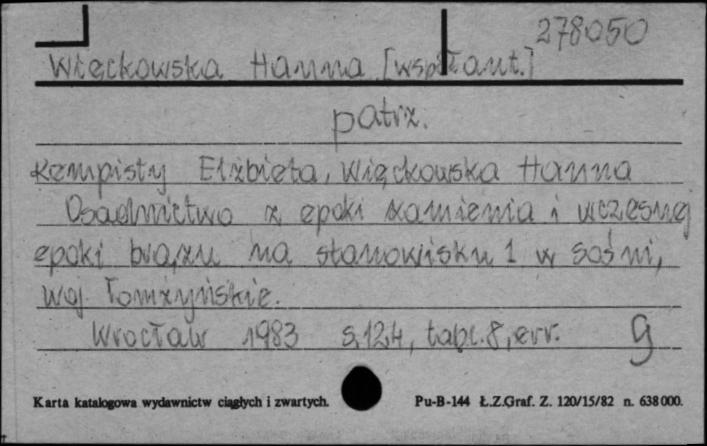 278050
Więckowska Hanna [współaut.]
patrz.
Kempisty Elżbieta, Więckowska Hanna
Osadnictwo z epoki kamienia i wczesnej
epoki brązu na stanowisku 1 w Sośni,
woj. Łomżyńskie.
Wrocław 1983 s. 124, tabl. 8, err. g
Karta katalogowa wydawnictw ciągłych i zwartych. Pu-B-144 Ł.Z.Graf. Z. 120/15/82 n. 638 000.